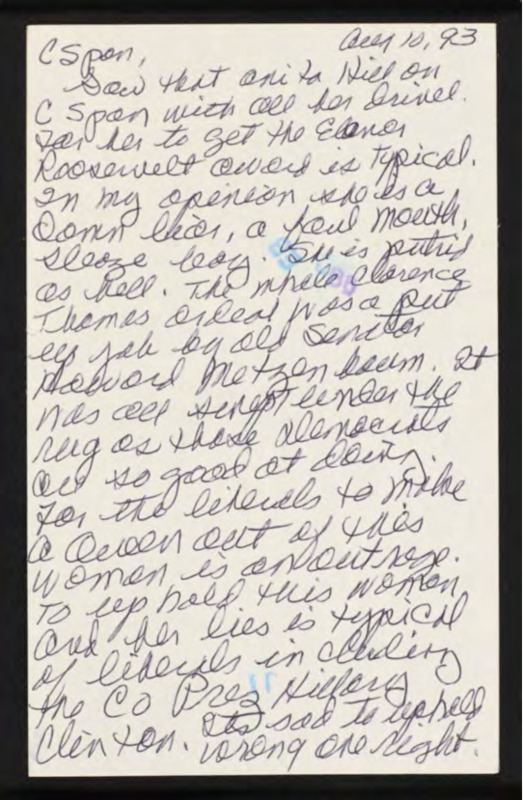 C Span, Aug 10, 93
Saw that Anita Hill on
C Span with all her drivel.
For her to get the Elanor
Roosevelt award is typical.
In my opinion she is a
Damn liar, a foul mouth,
sleaze bag. She is putrid
as hell. The whole Clarence
Thomas ordeal was a put
up job by old Senator
Howard Metzenbaum. It
was all swept under the
rug as those Democrats
are so good at doing.
For the liberals to make
a Queen out of this
woman is an outrage.
To uphold this woman
and her lies is typical
of liberals including
the Co Prez Hillary
Clinton. Its sad to uphold
wrong over right.